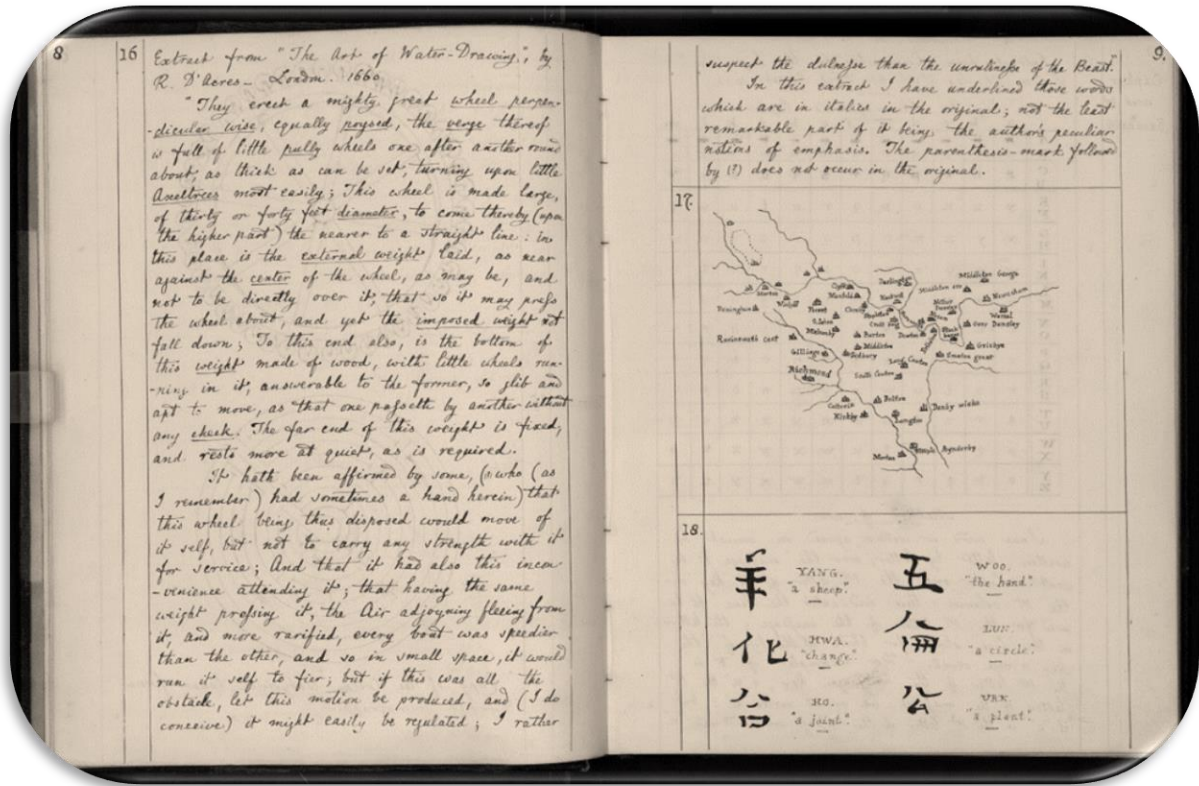 8
16
Extract from "The Art of Water-Drawing", by
R. D'Acres— London. 1660.
"They erect a mighty great wheel perpen-
-dicular wise, equally poysed, the verge thereof
is full of little pully wheels one after another round
about, as thick as can be set, turning upon little
Axeltrees most easily; This wheel is made large,
of thirty or forty feet diameter, to come thereby (upon
the higher part) the nearer to a straight line: in
this place is the external weight laid, as near
against the center of the wheel, as may be, and
not to be directly over it, that so it may press
the wheel about, and yet the imposed weight not
fall down; To this end also, is the bottom of
this weight made of wood, with little wheels run-
-ning in it, answerable to the former, so glib and
apt to move, as that one passeth by another without
any check. The far end of this weight is fixed,
and rests more at quiet, as is required.
It hath been affirmed by some, (?) who (as
I remember) had sometimes a hand herein) that
this wheel being thus disposed would move of
it self, but not to carry any strength with it
for service; And that it had also this incon
-venience attending it; that having the same
weight pressing it, the Air adjoyning fleeing from
it, and more rarified, every bout was speedier
than the other, and so in small space, it would
run it self to fier; but if this was all the
obstacle, let this motion be produced, and (I do
conceive) it might easily be regulated; I rather
9.
suspect the dulnesse than the unrulinesse of the Beast."
In this extract I have underlined those words
which are in italics in the original; not the least
remarkable part of it being the author's peculiar
notions of emphasis. The parenthesis-mark followed
by (?) does not occur in the original.
17.
Middleton George
Middleton one
Newsham
Barton
Ravensworth cast
Gilling
Middleton
Richmond
South Couton
Great Smeaton
Catterick
Bolton
Kirkby
Langton
Danby wiske
Morton
Aynderby
18.
羊 YANG. "a sheep".
五 WOO. "the hand".
化 HWA. "change".
侖 LUN. "a circle".
合 HO. "a joint".
"a plant".